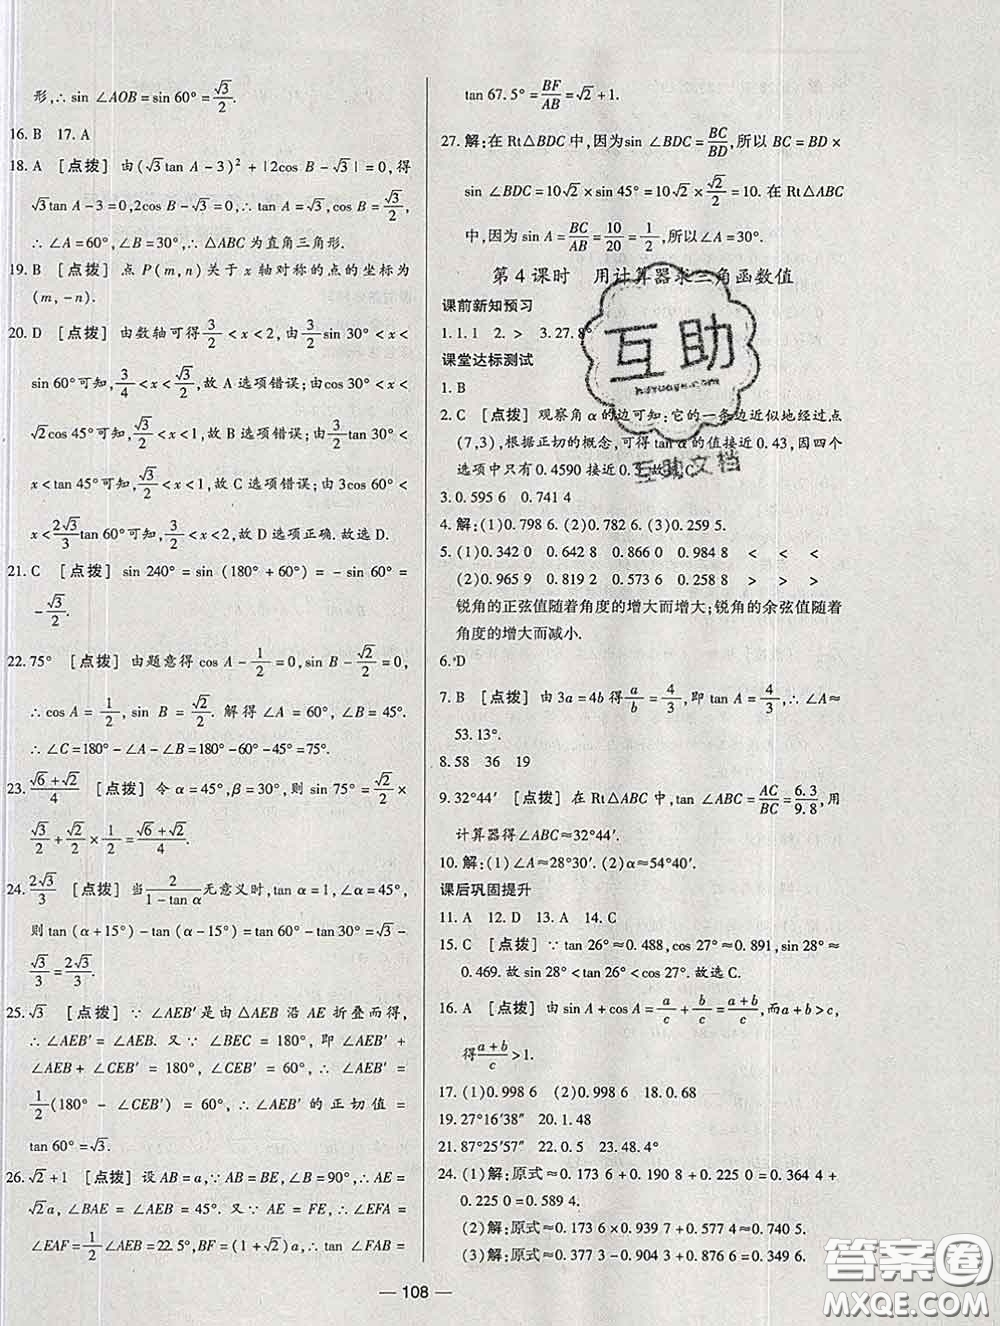 形,∴sin ∠AOB=sin 60°=√3/2.
16. B　17. A
18. A　[点拨]　由(√3tan A-3)²+|2cos B-√3|=0,得
√3tan A-3=0,2cos B-√3=0,∴tan A=√3,cos B=√3/2,
∴∠A=60°,∠B=30°,∴△ABC 为直角三角形.
19. B　[点拨]　点 P(m,n)关于 x 轴对称的点的坐标为
(m,-n).
20. D　[点拨]　由数轴可得3/2<x<2,由 sin 30°<x<
sin 60°可知,3/4<x<√3/2,故 A 选项错误;由 cos 30°<x<
√2cos 45°可知,√3/2<x<1,故 B 选项错误;由3/2tan 30°<
x<tan 45°可知,√3/2<x<1,故 C 选项错误;由 3cos 60°<
x<2√3/3tan 60°可知,3/2<x<2,故 D 选项正确.故选 D.
21. C　[点拨]　sin 240°=sin (180°+60°)=-sin 60°=
-√3/2.
22. 75°　[点拨]　由题意得 cos A-1/2=0,sin B-√2/2=0,
∴cos A=1/2,sin B=√2/2.解得∠A=60°,∠B=45°.
∴∠C=180°-∠A-∠B=180°-60°-45°=75°.
23. (√6+√2)/4　[点拨]　令 α=45°,β=30°,则 sin 75°=√2/2×
√3/2+√2/2×1/2=(√6+√2)/4.
24. 2√3/3　[点拨]　当2/(1-tan α)无意义时,tan α=1,∠α=45°,
则 tan (α+15°)-tan (α-15°)=tan 60°-tan 30°=√3-
√3/3=2√3/3.
25. √3　[点拨]　∵∠AEB′是由△AEB 沿 AE 折叠而得,
∴∠AEB′=∠AEB.又∵∠BEC=180°,即∠AEB′+
∠AEB+∠CEB′=180°,∠CEB′=60°,∴∠AEB′=
1/2(180°-∠CEB′)=60°,∴∠AEB′的正切值=
tan 60°=√3.
26. √2+1　[点拨]　设 AB=a,∵AB=BE,∠B=90°,∴AE=
√2a,∠BAE=∠AEB=45°.又∵AE=FE,∴∠EFA=
∠EAF=1/2∠AEB=22.5°,BF=(1+√2)a,∴tan ∠FAB=
tan 67.5°=BF/AB=√2+1.
27. 解:在 Rt△BDC 中,因为sin ∠BDC=BC/BD,所以 BC=BD×
sin ∠BDC=10√2×sin 45°=10√2×√2/2=10.在 Rt△ABC
中,因为 sin A=BC/AB=10/20=1/2,所以∠A=30°.
第 4 课时　用计算器求三角函数值
课前新知预习
1. 1.1　2. >　3. 27.8°
课堂达标测试
1. B
2. C　[点拨]　观察角 α 的边可知:它的一条边近似地经过点
(7,3),根据正切的概念,可得 tan α 的值接近 0.43,因四个
选项中只有 0.4590 接近 0.43,故选 C.
3. 0.595 6　0.741 4
4. 解:(1)0.798 6.(2)0.786 5.(3)0.259 5.
5. (1)0.342 0　0.642 8　0.866 0　0.984 8　<　<　<
(2)0.965 9　0.819 2　0.573 6　0.258 8　>　>　>
锐角的正弦值随着角度的增大而增大;锐角的余弦值随着
角度的增大而减小.
6. D
7. B　[点拨]　由 3a=4b 得a/b=4/3,即 tan A=4/3,∴∠A≈
53.13°.
8. 58　36　19
9. 32°44′　[点拨]　在 Rt△ABC 中,tan ∠ABC=AC/BC=6.3/9.8,用
计算器得∠ABC≈32°44′.
10. 解:(1)∠A≈28°30′.(2)α≈54°40′.
课后巩固提升
11. A　12. D　13. A　14. C
15. C　[点拨]　∵tan 26°≈0.488,cos 27°≈0.891,sin 28°≈
0.469.故 sin 28°<tan 26°<cos 27°.故选 C.
16. A　[点拨]　由 sin A+cos A=a/c+b/c=(a+b)/c,而a+b>c,
得(a+b)/c>1.
17. (1)0.998 6　(2)0.998 6　18. 0.68
19. 27°16′38″　20. 1.48
21. 87°25′57″　22. 0.5　23. 48.4°
24. (1)解:原式≈0.173 6+0.190 8+0.225 0=0.364 4+
0.225 0=0.589 4.
(2)解:原式≈0.173 6×0.939 7+0.753 6=0.916 7.
(3)解:原式≈0.377 3-0.904 3+0.876 6=0.349 6.
互助
互助文档
答案圈
MXQE.COM
— 108 —